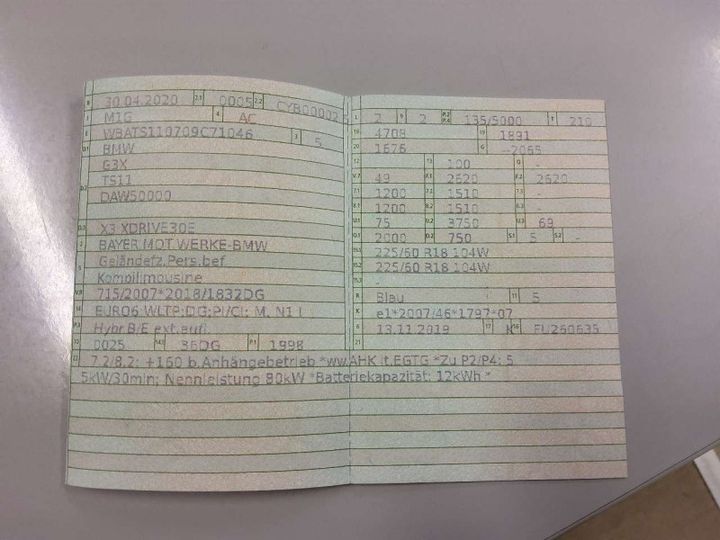 B 30.04.2020 2.1 0005 2.2 CYB00002 5
J M1G 4 AC
E WBATS110709C71046 3 5
D.1 BMW
G3X
D.2 TS11
DAW50000
D.3 X3 XDRIVE30E
2 BAYER.MOT.WERKE-BMW
5 Geländefz.Pers.bef.
Kombilimousine
V.9 715/2007*2018/1832DG
14 EURO6;WLTP;DG;PI/CI; M, N1 I
P.3 Hybr.B/E ext.aufl.
10 0025 14.1 36DG P.1 1998
22 7.2/8.2: +160 b.Anhängebetrieb *ww.AHK lt.EGTG *Zu P2/P4: 5
5kW/30min; Nennleistung 80kW *Batteriekapazität: 12kWh *
L 2 9 2 P.2 P.4 135/5000 T 210
18 4708 19 1891
20 1676 G --2065
12 - 13 100 Q -
V.7 49 F.1 2620 F.2 2620
7.1 1200 7.2 1510 7.3 -
8.1 1200 8.2 1510 8.3 -
U.1 75 U.2 3750 U.3 69
O.1 2000 O.2 750 S.1 5 S.2 -
15.1 225/60 R18 104W
15.2 225/60 R18 104W
15.3 -
R Blau 11 5
K e1*2007/46*1797*07
6 13.11.2019 17 K 16 FU260635
21